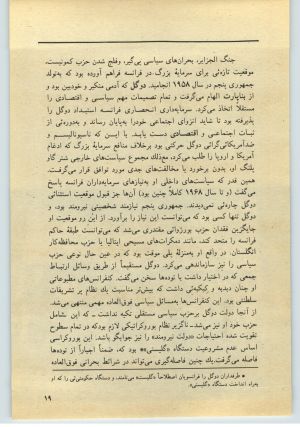 جنگ الجزایر، بحران‌های سیاسی پی‌گیر، وفلج شدن حزب کمونیست،
موقعیت تازه‌ئی برای سرمایهٔ بزرگ در فرانسه فراهم آورده بود که به‌تولد
جمهوری پنجم در سال ۱۹۵۸ انجامید. دوگل که آدمی متکبر و خودبین بود و
از بناپارت الهام می‌گرفت و تمام تصمیمات مهم سیاسی و اقتصادی را
مستقلاً اتخاذ می‌کرد. سرمایه‌داری انحصاری فرانسه استبداد دوگل را
پذیرفته بود تا شاید انزوای اجتماعی خودرا به‌پایان رساند و به‌دوره‌ئی از
ثبات اجتماعی و اقتصادی دست یابد. با این که ناسیونالیسم و
ضدآمریکائی‌گرائی دوگل حرکتی بود برخلاف منافع سرمایهٔ بزرگ که ادغام
آمریکا و اروپا را طلب می‌کرد، مع‌ذلك مجموع سیاست‌های خارجی شتر گاو
پلنگ او، بدون برخورد یا مخالفت‌های جدی مورد توافق قرار می‌گرفت.
همین قدر که سیاست‌های داخلی او به‌نیازهای سرمایه‌داران فرانسه پاسخ
می‌گفت (و تا سال ۱۹۶۸ کاملاً چنین بود) آن‌ها جز قبول موقعیت استثنائی
دوگل چاره‌ئی نمی‌دیدند. جمهوری پنجم نیازمند شخصیتی نیرومند بود، و
دوگل تنها کسی بود که می‌توانست این نیاز را برآورد. از این رو موقعیت او
جایگزین فقدان حزب بورژوائی مقتدری می‌شد که می‌توانست طبقهٔ حاکم
فرانسه را متحد کند، مانند دمکرات‌های مسیحی ایتالیا یا حزب محافظه‌کار
انگلستان. در واقع او به‌منزلهٔ پلی موقت بود که در عین حال نوعی حزب
سیاسی را نیز سازماندهی می‌کرد. دوگل مستقیماً از طریق وسائل ارتباط
جمعی که در اختیار داشت با توده‌ها سخن می‌گفت. کنفرانس‌های مطبوعاتی
او چنان دبدبه و کبکبه‌ئی داشت که بیش‌تر مناسبت یك نظام پر تشریفات
سلطنتی بود. این کنفرانس‌ها به‌مسائل سیاسی فوق‌العاده مهمی منتهی می‌شد.
از آنجا دولت دوگل برحزب سیاسی مستقلی تکیه نداشت – که این شامل
حزب خود او نیز می‌شد– ناگزیر نظام بوروکراتیکی لازم بود که در تمام سطوح
تقویت شده احتیاجات «دولت نیرومند» را نیز جوابگو باشد. این بوروکراسی
اساس عدم مشروعیت دستگاه «گلیستی»* بود که، ضمناً اجباراً از توده‌ها
فاصله می‌گرفت. یك چنین فاصله‌گیری می‌تواند در شرائط بحرانی فوق‌العاده
* طرفداران دوگل را فرانسویان اصطلاحاً «گلیست» می‌نامند، و دستگاه حکومتی‌ئی را که او
به‌راه انداخت دستگاه «گلیستی».
۱۹